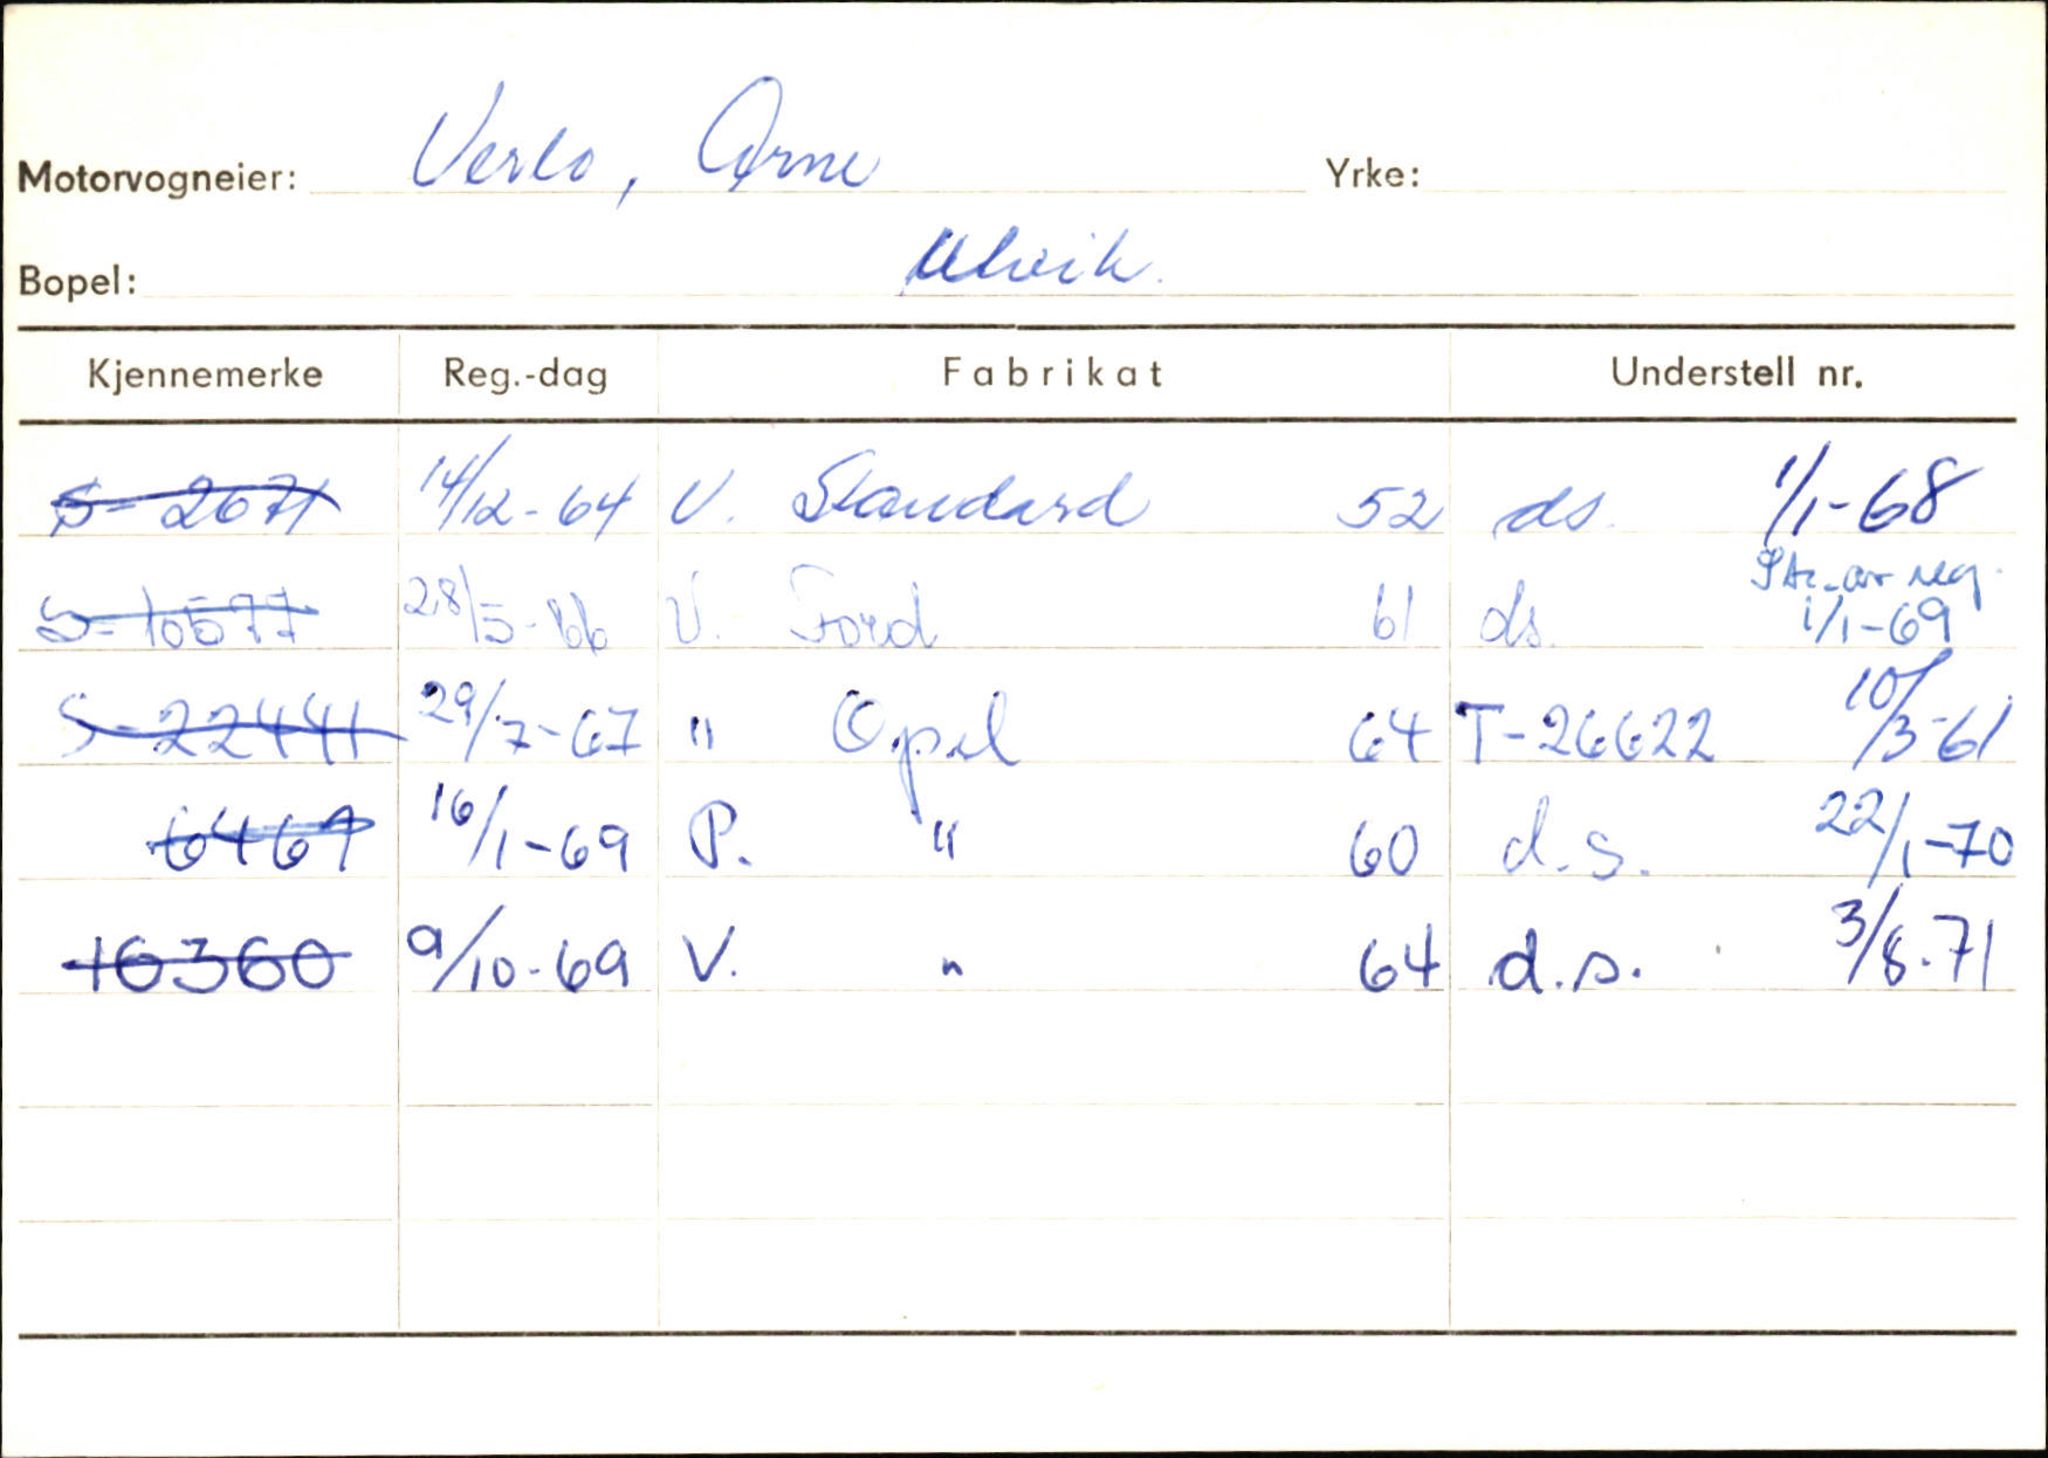 Motorvogneier: Verlo, Arne Yrke:
Bopel: Ulvik.
Kjennemerke Reg.-dag Fabrikat Understell nr.
S-2671 14/12-64 V. Standard 52 ds. 1/1-68
S-10577 28/5-66 V. Ford 61 ds. Str. av reg. 1/1-69
S-22441 29/7-67 " Opel 64 T-26622 10/3-61
6469 16/1-69 P. " 60 d.s. 22/1-70
16360 9/10-69 V. " 64 d.s. 3/8-71